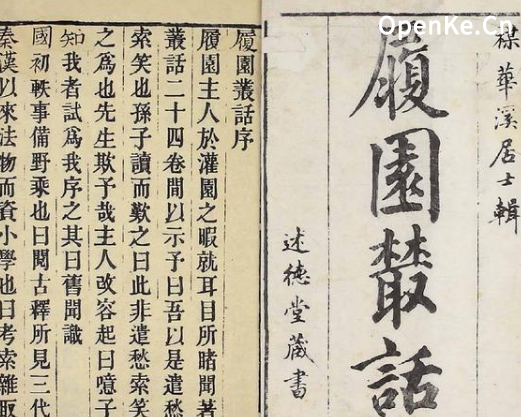 OpenKe.Cn
楳華溪居士輯
履園叢話
述德堂藏書
履園叢話序
履園主人於灌園之暇就耳目所睹聞著
叢話二十四卷間以示予曰吾以是遣愁
索笑也孫子讀而歎之曰此非遣愁索笑
之爲也先生欺予哉主人改容起曰噫子
知我者試爲我序之其曰舊聞識
國初軼事備野乘也曰閱古釋所見三代
秦漢以來法物而資小學也曰考索雜取